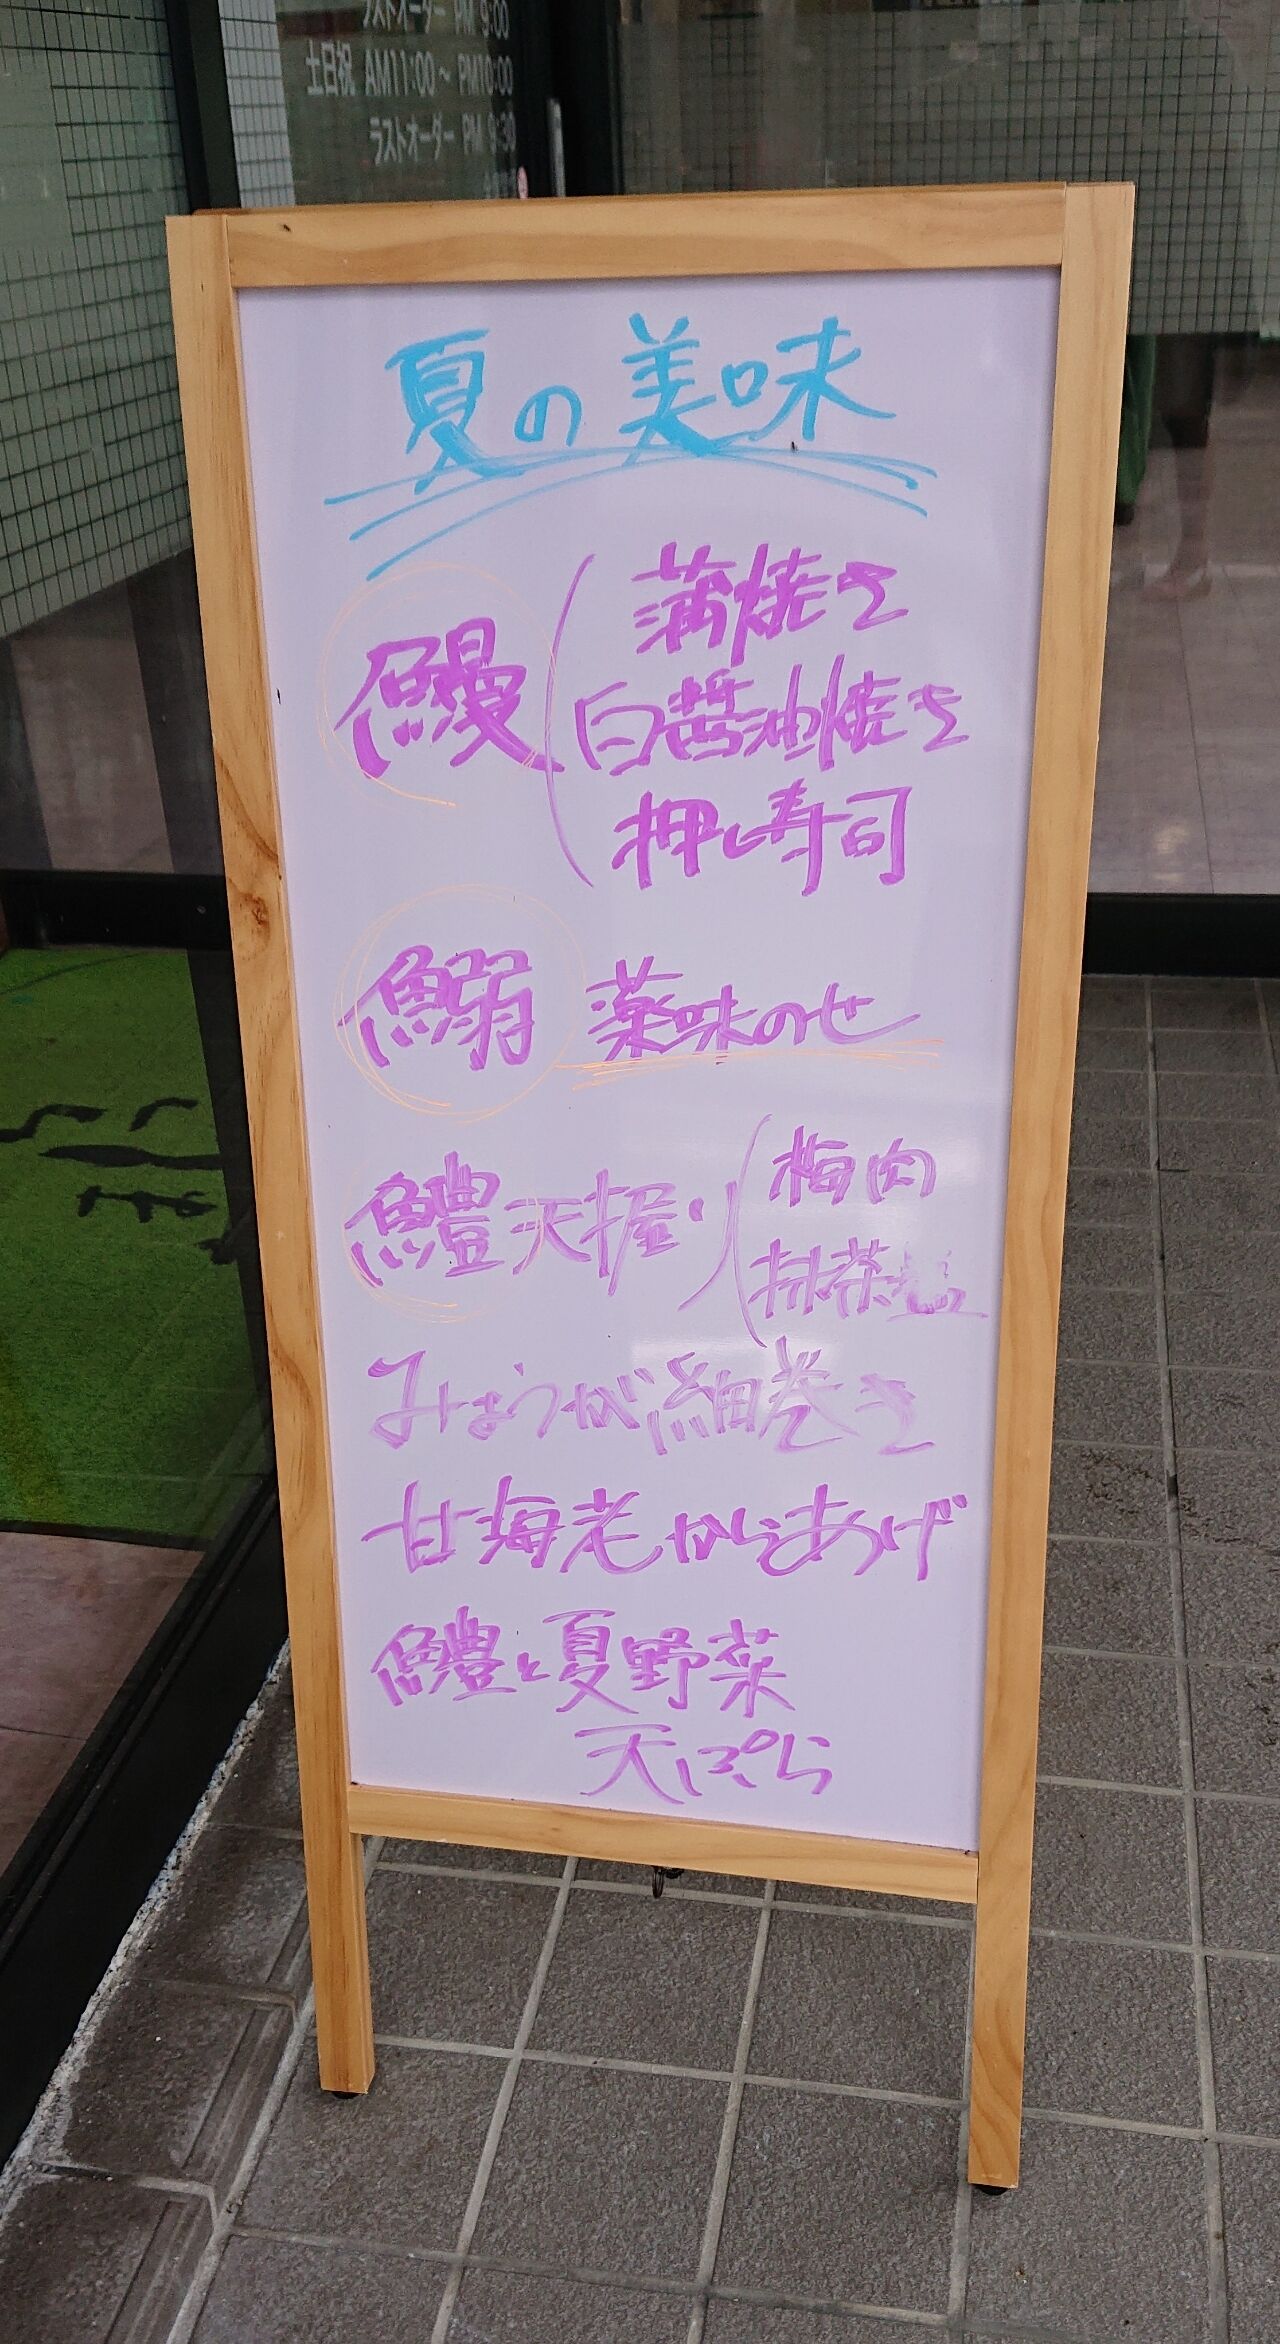 ラストオーダー PM 9:00
土日祝 AM11:00～PM10:00
ラストオーダー PM 9:30
夏の美味
鰻
蒲焼き
白醤油焼き
押し寿司
鰯 薬味のせ
鱧天握り
梅肉
抹茶塩
みょうが細巻き
甘海老からあげ
鱧と夏野菜
天ぷら